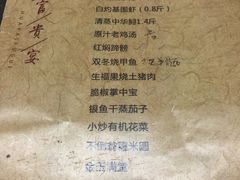 富贵宴
白灼基围虾（0.8斤）
清蒸中华鲟1.4斤
原汁老鸡汤
红焖蹄膀
双冬烧甲鱼
生福果烧土猪肉
脆椒掌中宝
银鱼干蒸茄子
小炒有机花菜